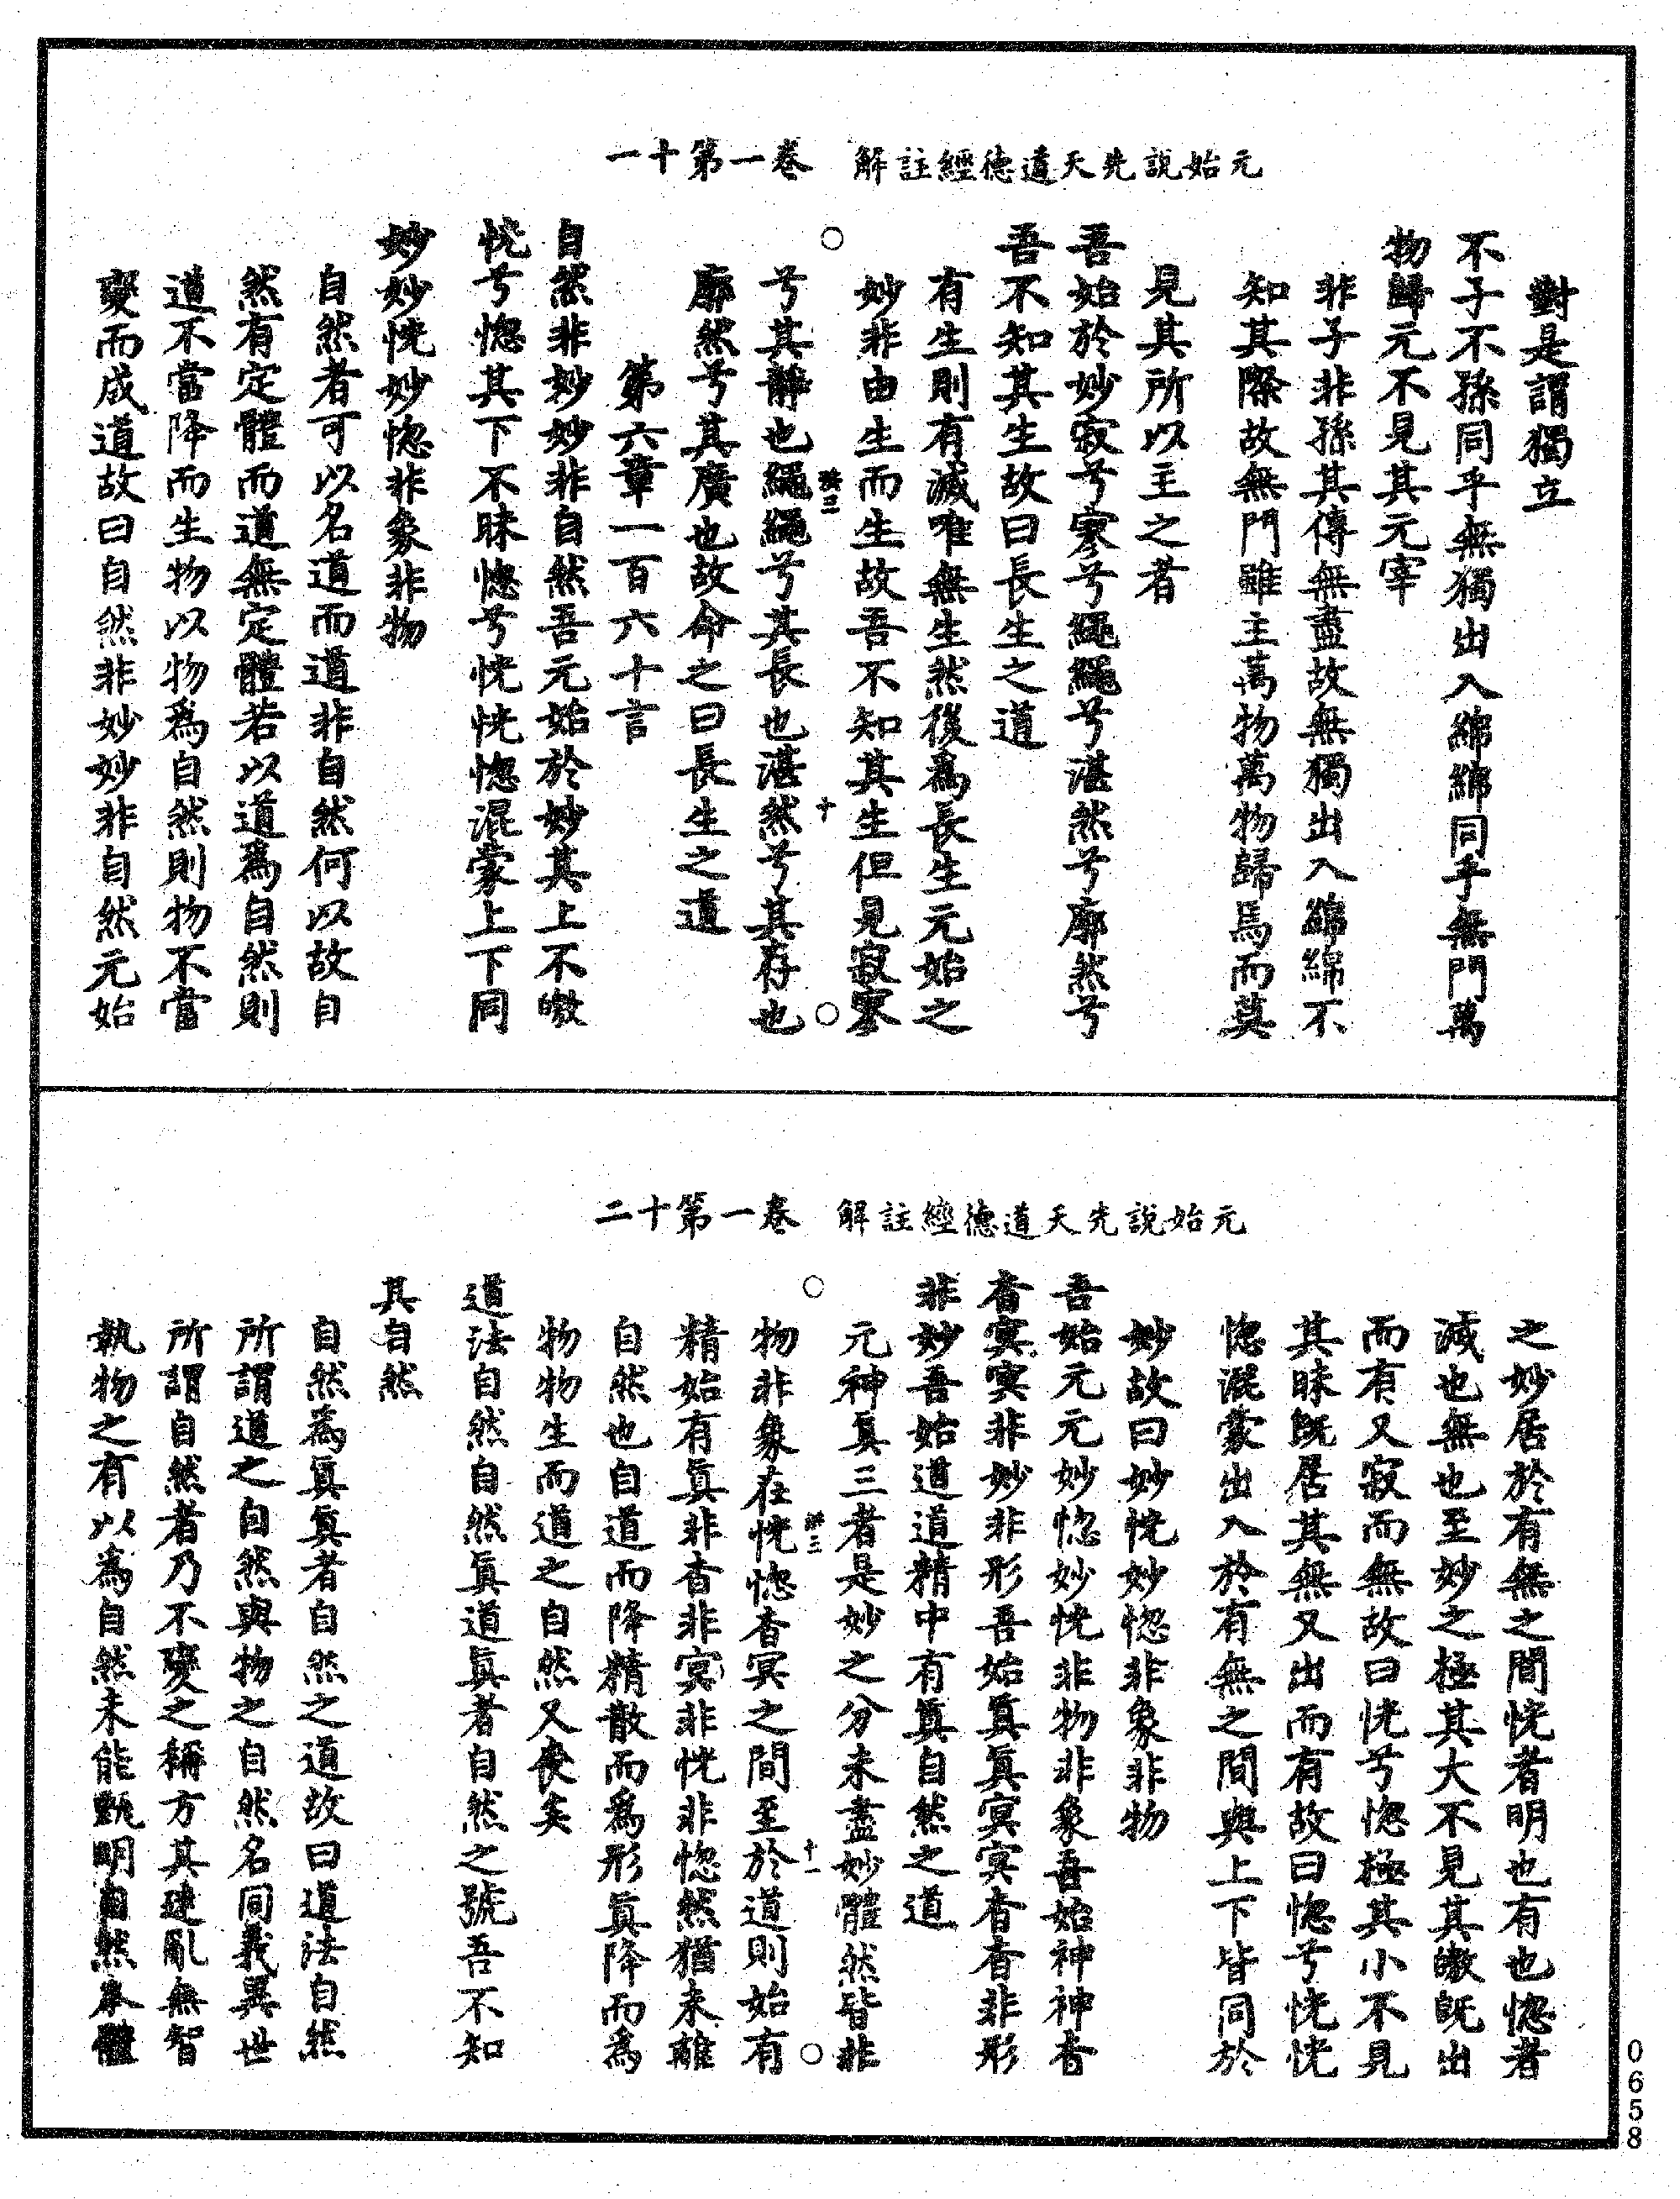 元始說先天道德經註解　卷一第十一
對是謂獨立
不子不孫同乎無獨出入綿綿同乎無門萬
物歸元不見其元宰
非子非孫其傳無盡故無獨出入綿綿不
知其際故無門雖主萬物萬物歸焉而莫
見其所以主之者
吾始於妙寂兮寥兮繩繩兮湛然兮廓然兮
吾不知其生故曰長生之道
有生則有滅唯無生然後為長生元始之
妙非由生而生故吾不知其生但見寂寥
○
兮其靜也繩繩兮其長也湛然兮其存也
廓然兮其廣也故命之曰長生之道
第六章一百六十言
自然非妙妙非自然吾元始於妙其上不皦
恍兮惚其下不昧惚兮恍恍惚混蒙上下同
妙妙恍妙惚非象非物
自然者可以名道而道非自然何以故自
然有定體而道無定體若以道為自然則
道不當降而生物以物為自然則物不當
變而成道故曰自然非妙妙非自然元始
元始說先天道德經註解　卷一第十二
之妙居於有無之間恍者明也有也惚者
滅也無也至妙之極其大不見其皦既出
而有又寂而無故曰恍兮惚極其小不見
其昧既居其無又出而有故曰惚兮恍恍
惚混蒙出入於有無之間與上下皆同於
妙故曰妙恍妙惚非象非物
吾始元元妙惚妙恍非物非象吾始神神杳
杳冥冥非妙非形吾始真真冥冥杳杳非形
非妙吾始道道精中有真自然之道
元神真三者是妙之分未盡妙體然皆非
○
物非象在恍惚杳冥之間至於道則始有
精始有真非杳非冥非恍非惚然猶未離
自然也自道而降精散而為形真降而為
物物生而道之自然又喪矣
道法自然自然真道真者自然之號吾不知
其自然
自然為真真者自然之道故曰道法自然
所謂道之自然與物之自然名同義異世
所謂自然者乃不變之稱方其建亂無智
執物之有以為自然未能甄明自然本體
0658